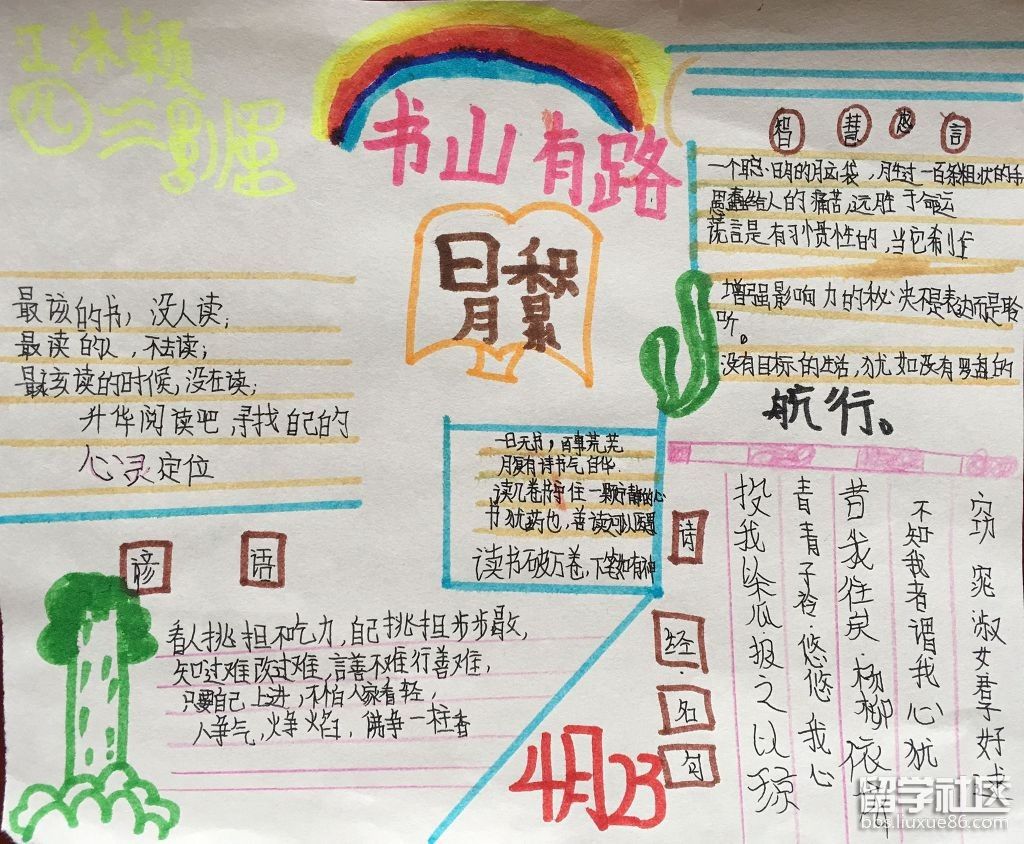 书山有路
日积
月累
智慧忠言
一个聪明的脑袋，胜过一百条粗壮的手
愚蠢给人的痛苦远胜于命运
谎言是有习惯性的，当它利
增强影响力的秘决不是表达而是聆
听。
没有目标的生活，犹如没有罗盘的
航行。
最该的书，没人读；
最读的人，不去读；
最该读的时候，没在读；
升华阅读吧，寻找自己的
心灵定位
一日无书，百事荒芜
月复有诗书气自华.
读几卷书守住一颗宁静的心
书犹药也，善读可以医愚
读书破万卷，下笔如有神
谚语
看人挑担不吃力，自己挑担步步歇，
知过难改过难，言善不难行善难，
只要自己上进，不怕人家看轻，
人争气，火争焰，佛争一柱香
4月23
诗经名句
窈窕淑女君子好逑
不知我者谓我心犹
昔我往矣·杨柳依
青青子衿·悠悠我心
投我木瓜·报之以琼
留学社区
bbs.liuxue86.com